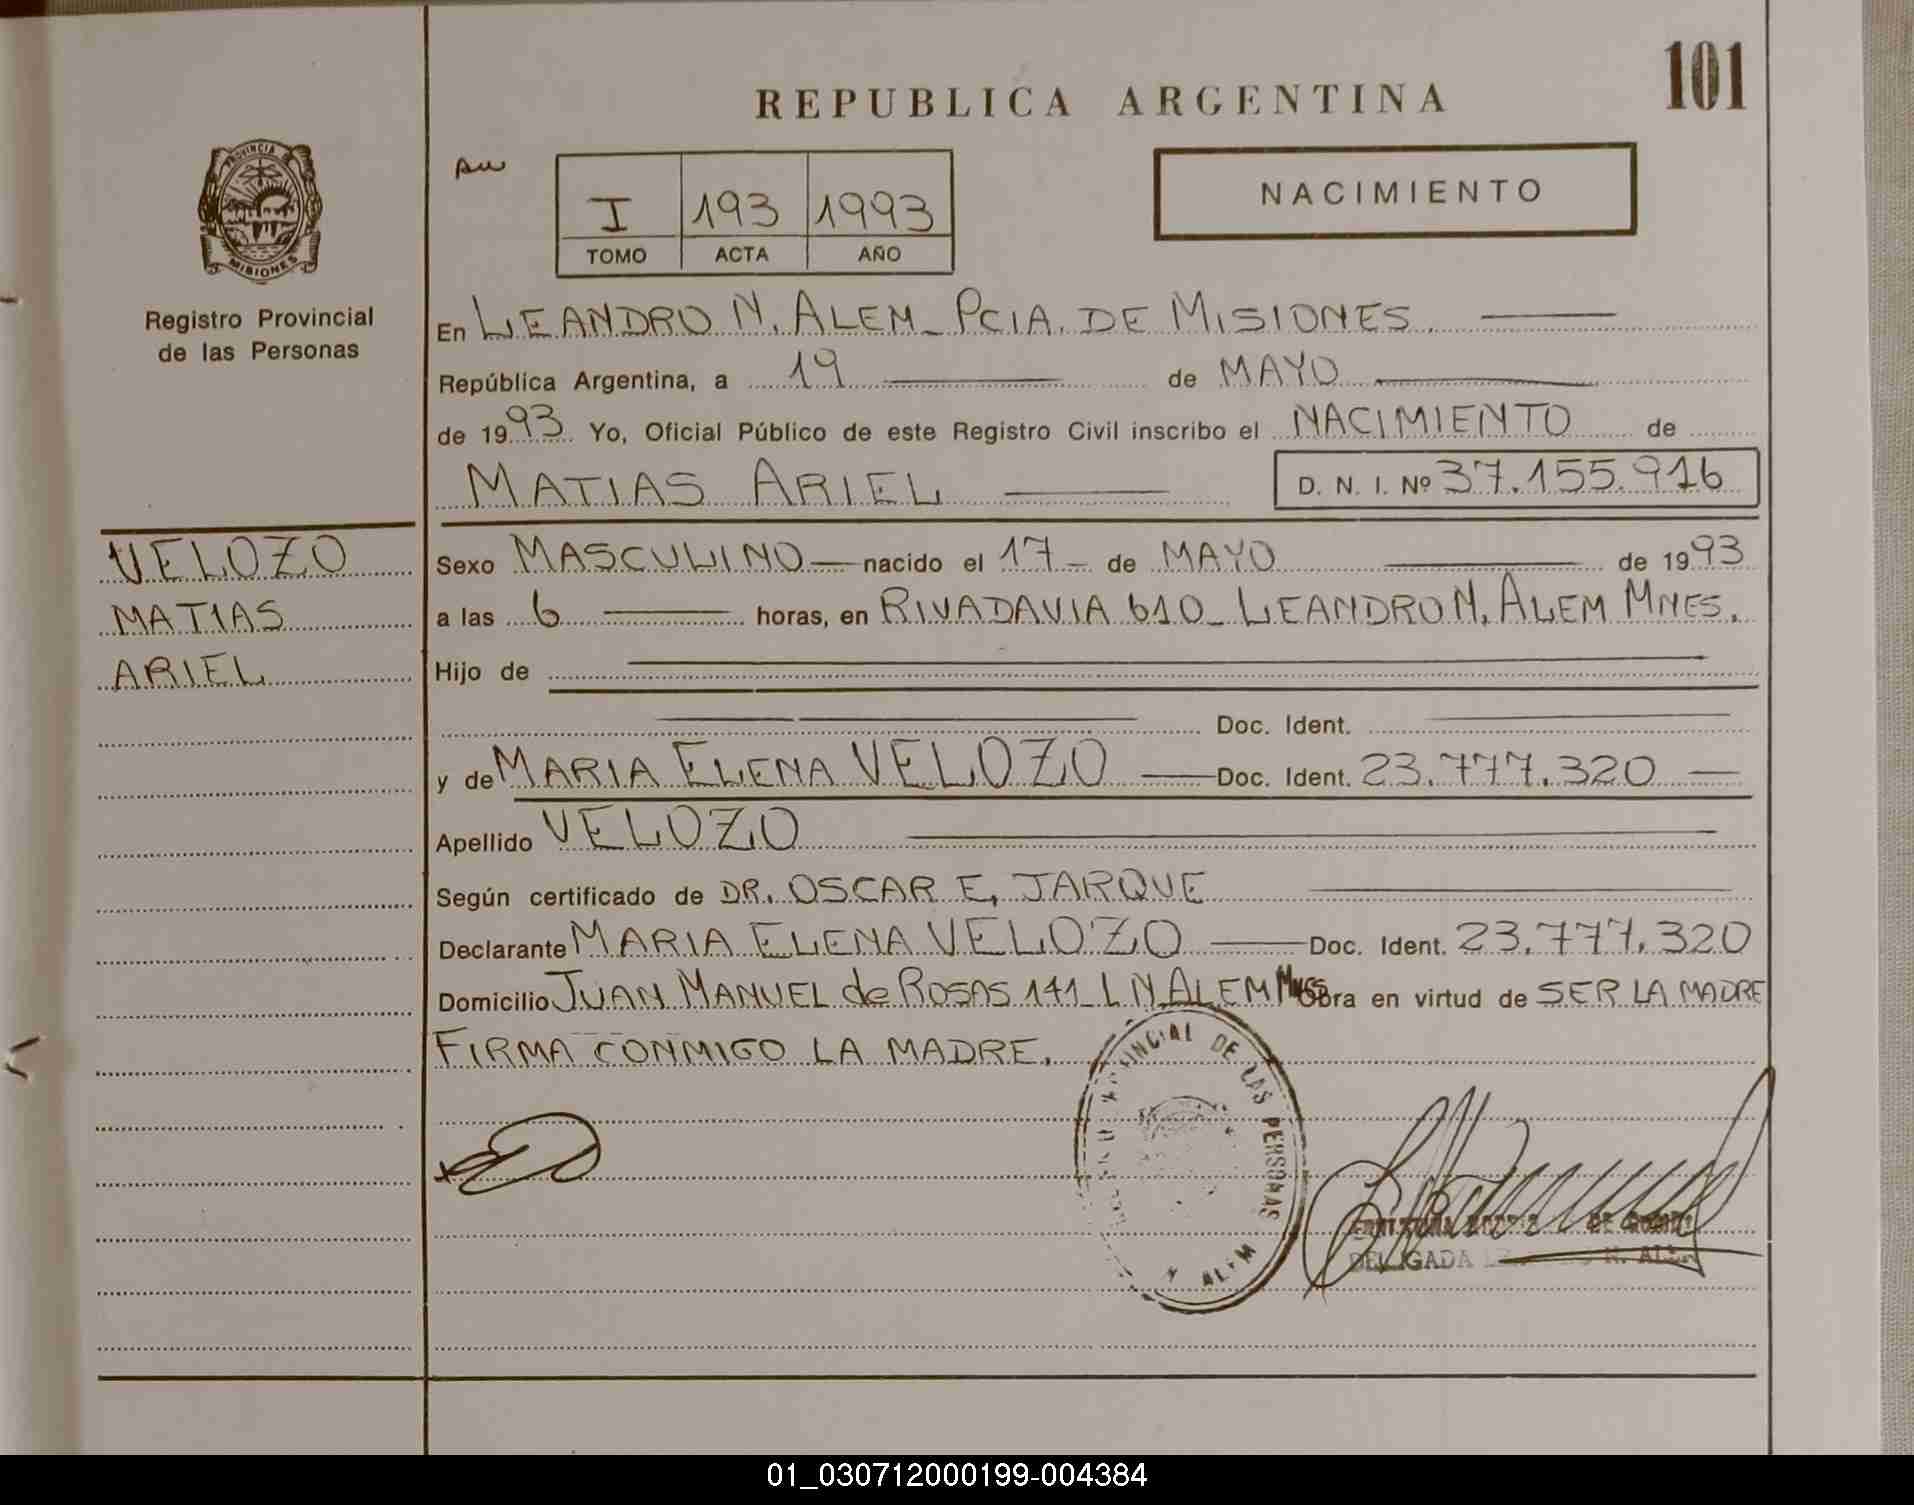 101
REPUBLICA ARGENTINA
PROVINCIA DE
MISIONES
Registro Provincial
de las Personas
I 193 1993
TOMO ACTA AÑO
NACIMIENTO
En LEANDRO N. ALEM_ PCIA. DE MISIONES.
República Argentina, a 19 de MAYO
de 1993 Yo, Oficial Público de este Registro Civil inscribo el NACIMIENTO de
MATIAS ARIEL D. N. I. Nº 37.155.916
VELOZO
MATIAS
ARIEL
Sexo MASCULINO nacido el 17 de MAYO de 1993
a las 6 horas, en RIVADAVIA 610_ LEANDRO N. ALEM MNES.
Hijo de
Doc. Ident.
y de MARIA ELENA VELOZO Doc. Ident. 23.777.320
Apellido VELOZO
Según certificado de DR. OSCAR E. JARQUE
Declarante MARIA ELENA VELOZO Doc. Ident. 23.777.320
Domicilio JUAN MANUEL de ROSAS 141_ L N ALEM Mnes Obra en virtud de SER LA MADRE
FIRMA CONMIGO LA MADRE.
DE LAS PERSONAS
ALEM
DELEGADA N. ALEM
01_030712000199-004384